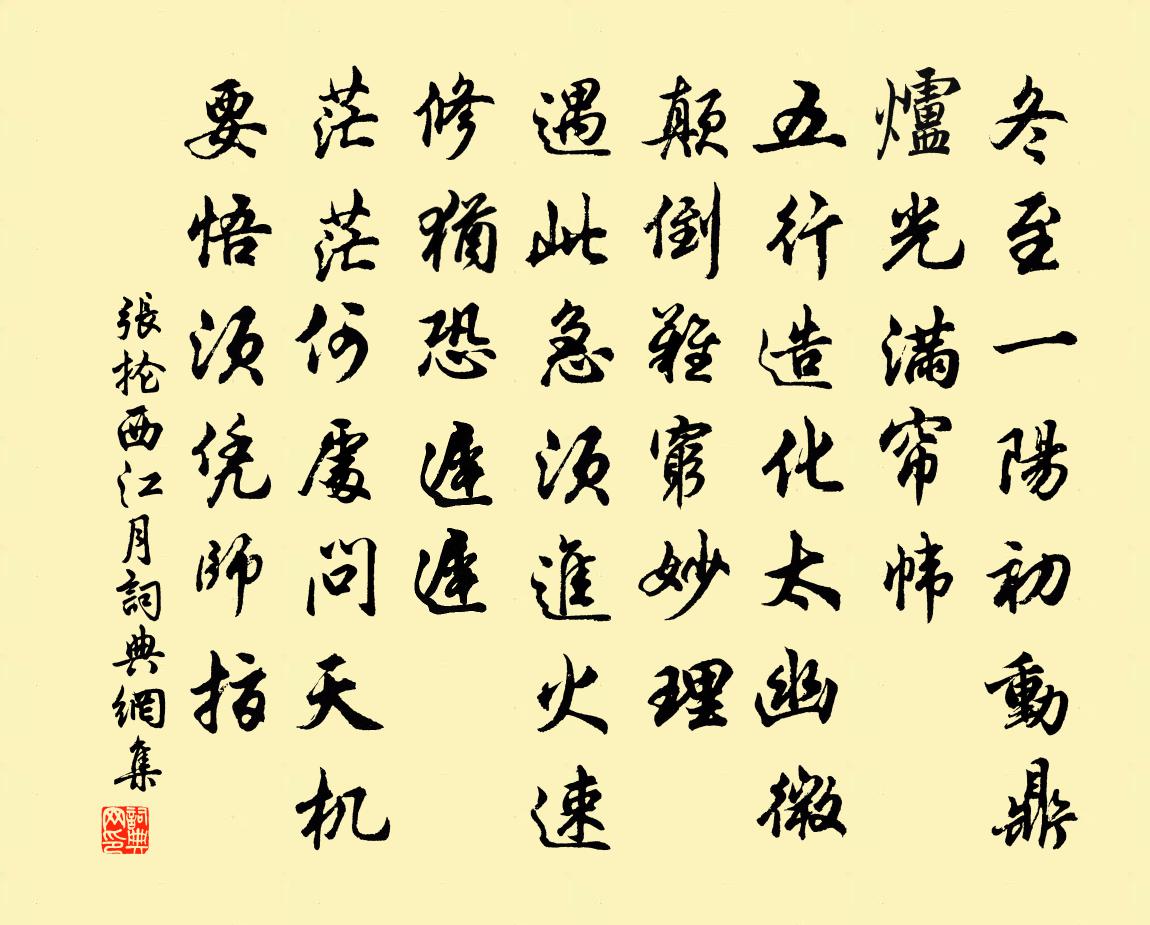 冬至一陽初動鼎
爐光滿帘帏
五行造化太幽微
顛倒難窮妙理
遇此急須進火速
修猶恐遲遲
茫茫何處問天机
要悟須凭師指
張掄西江月詞典網集
詞典網印